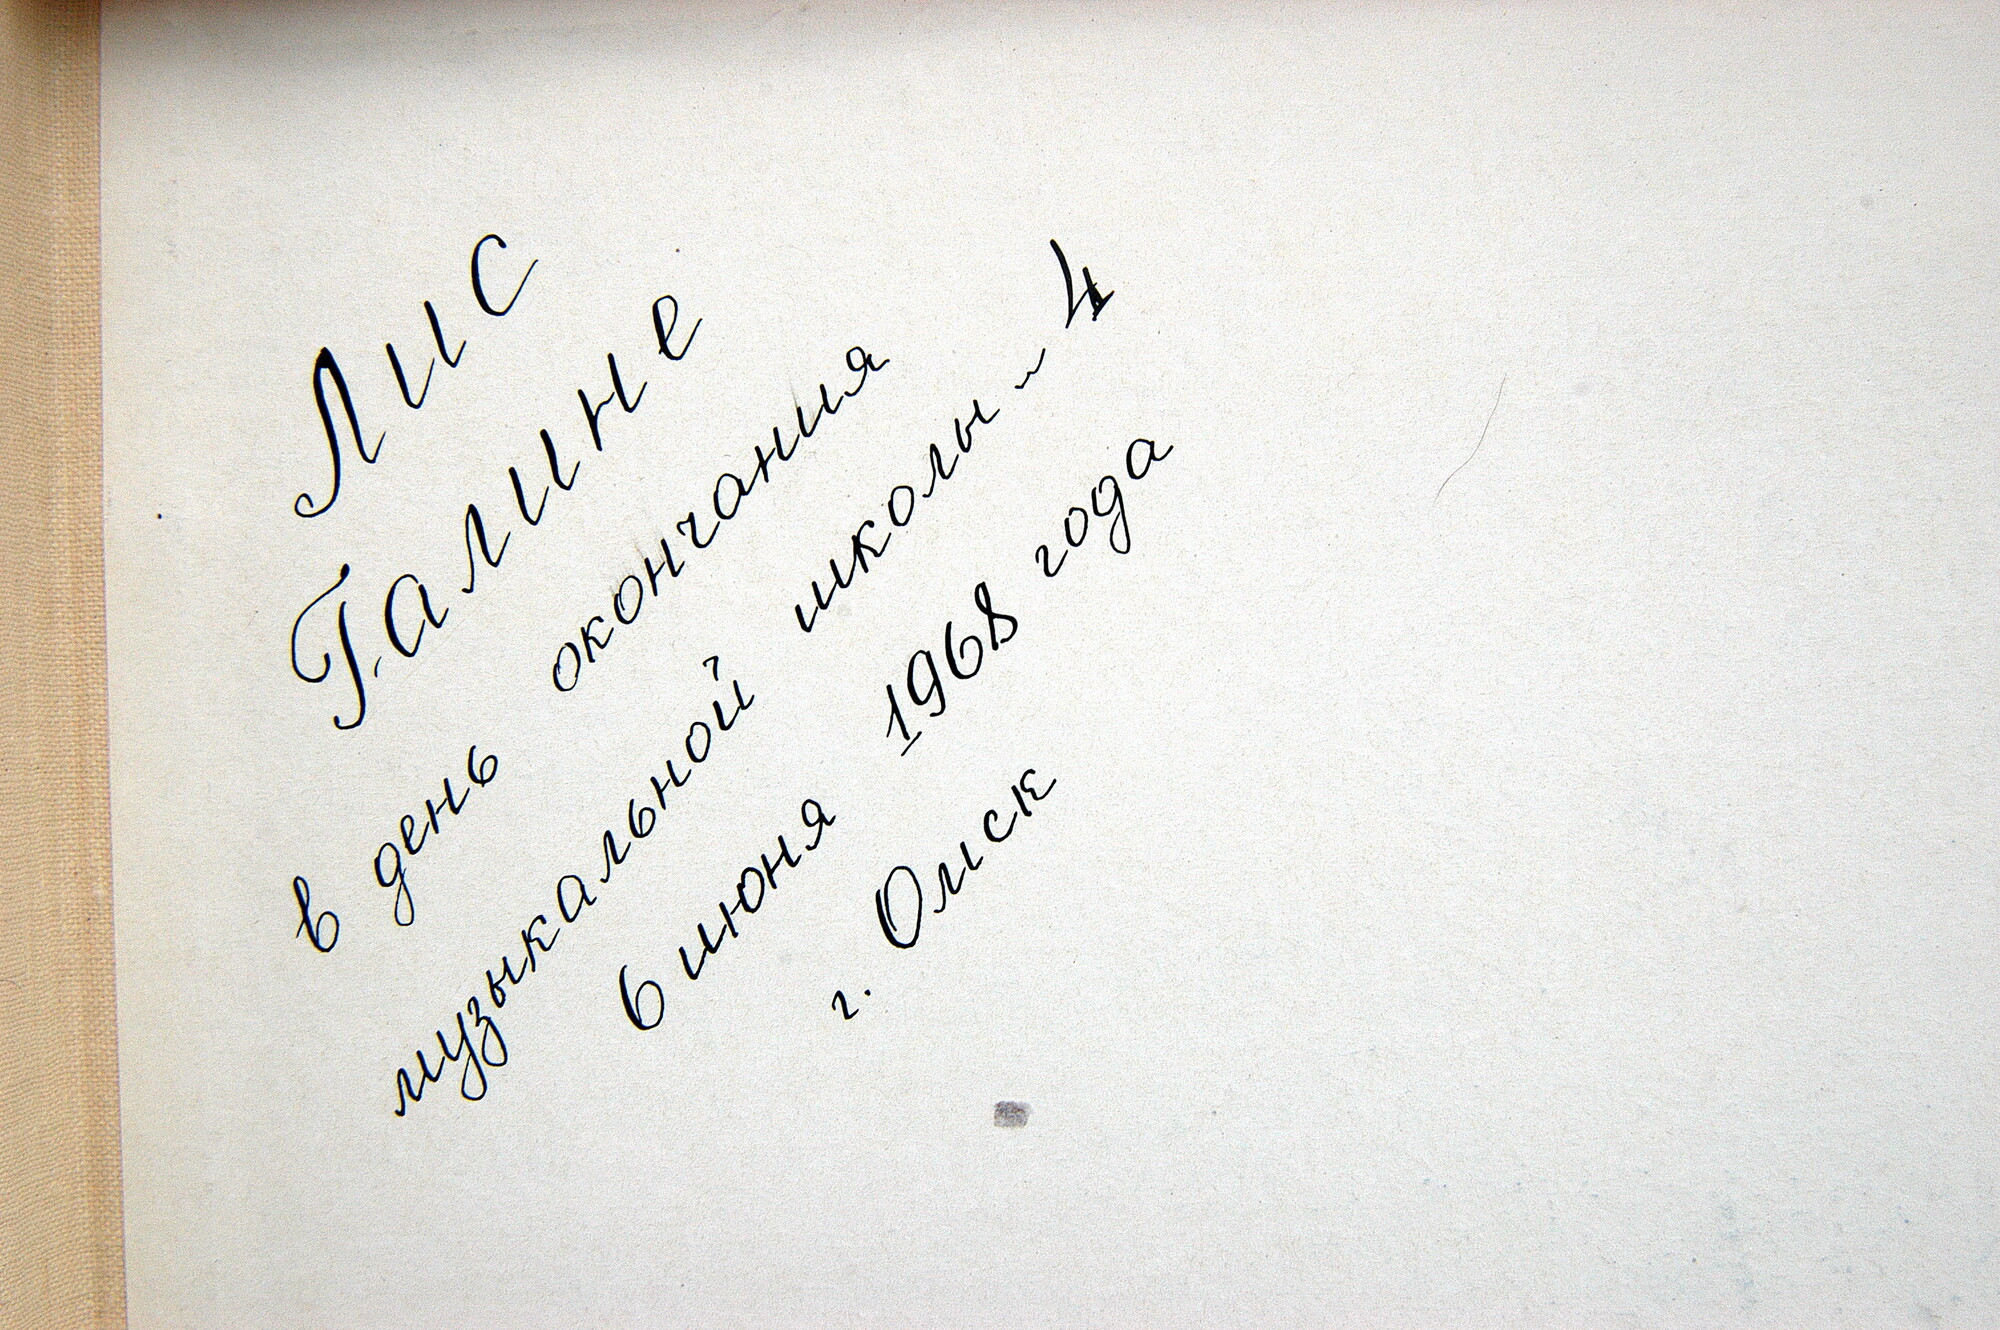 Лис
Галине
в день окончания
музыкальной школы - 4
6 июня 1968 года
г. Омск